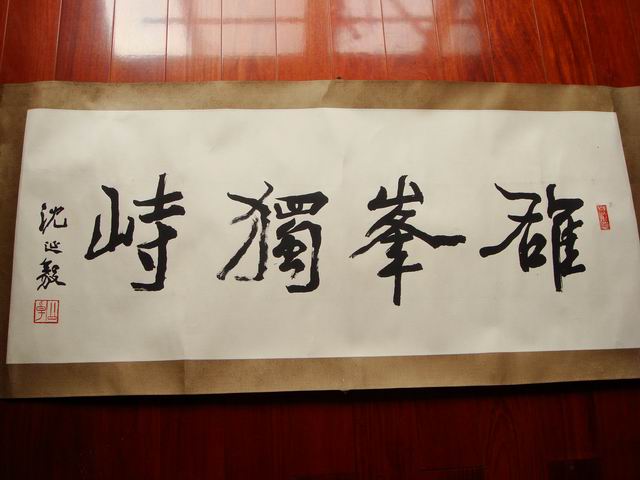 雄峯獨峙
沈延毅